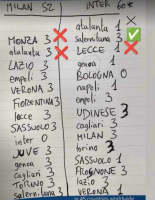 MILAN 52
MONZA 3
atalanta 3
LAZIO 3
empoli 3
VERONA 3
FIORENTINA 3
lecce 3
SASSUOLO 3
inter 0
JUVE 3
genoa 3
cagliari 3
TORINO 3
salernitana 3
INTER 60*
atalanta 1
salernitana 3
LECCE 1
genoa 1
BOLOGNA 0
napoli 1
empoli 3
UDINESE 3
cagliari 3
MILAN 3
torino 3
SASSUOLO 1
FROSINONE 3
lazio 2
VERONA 1